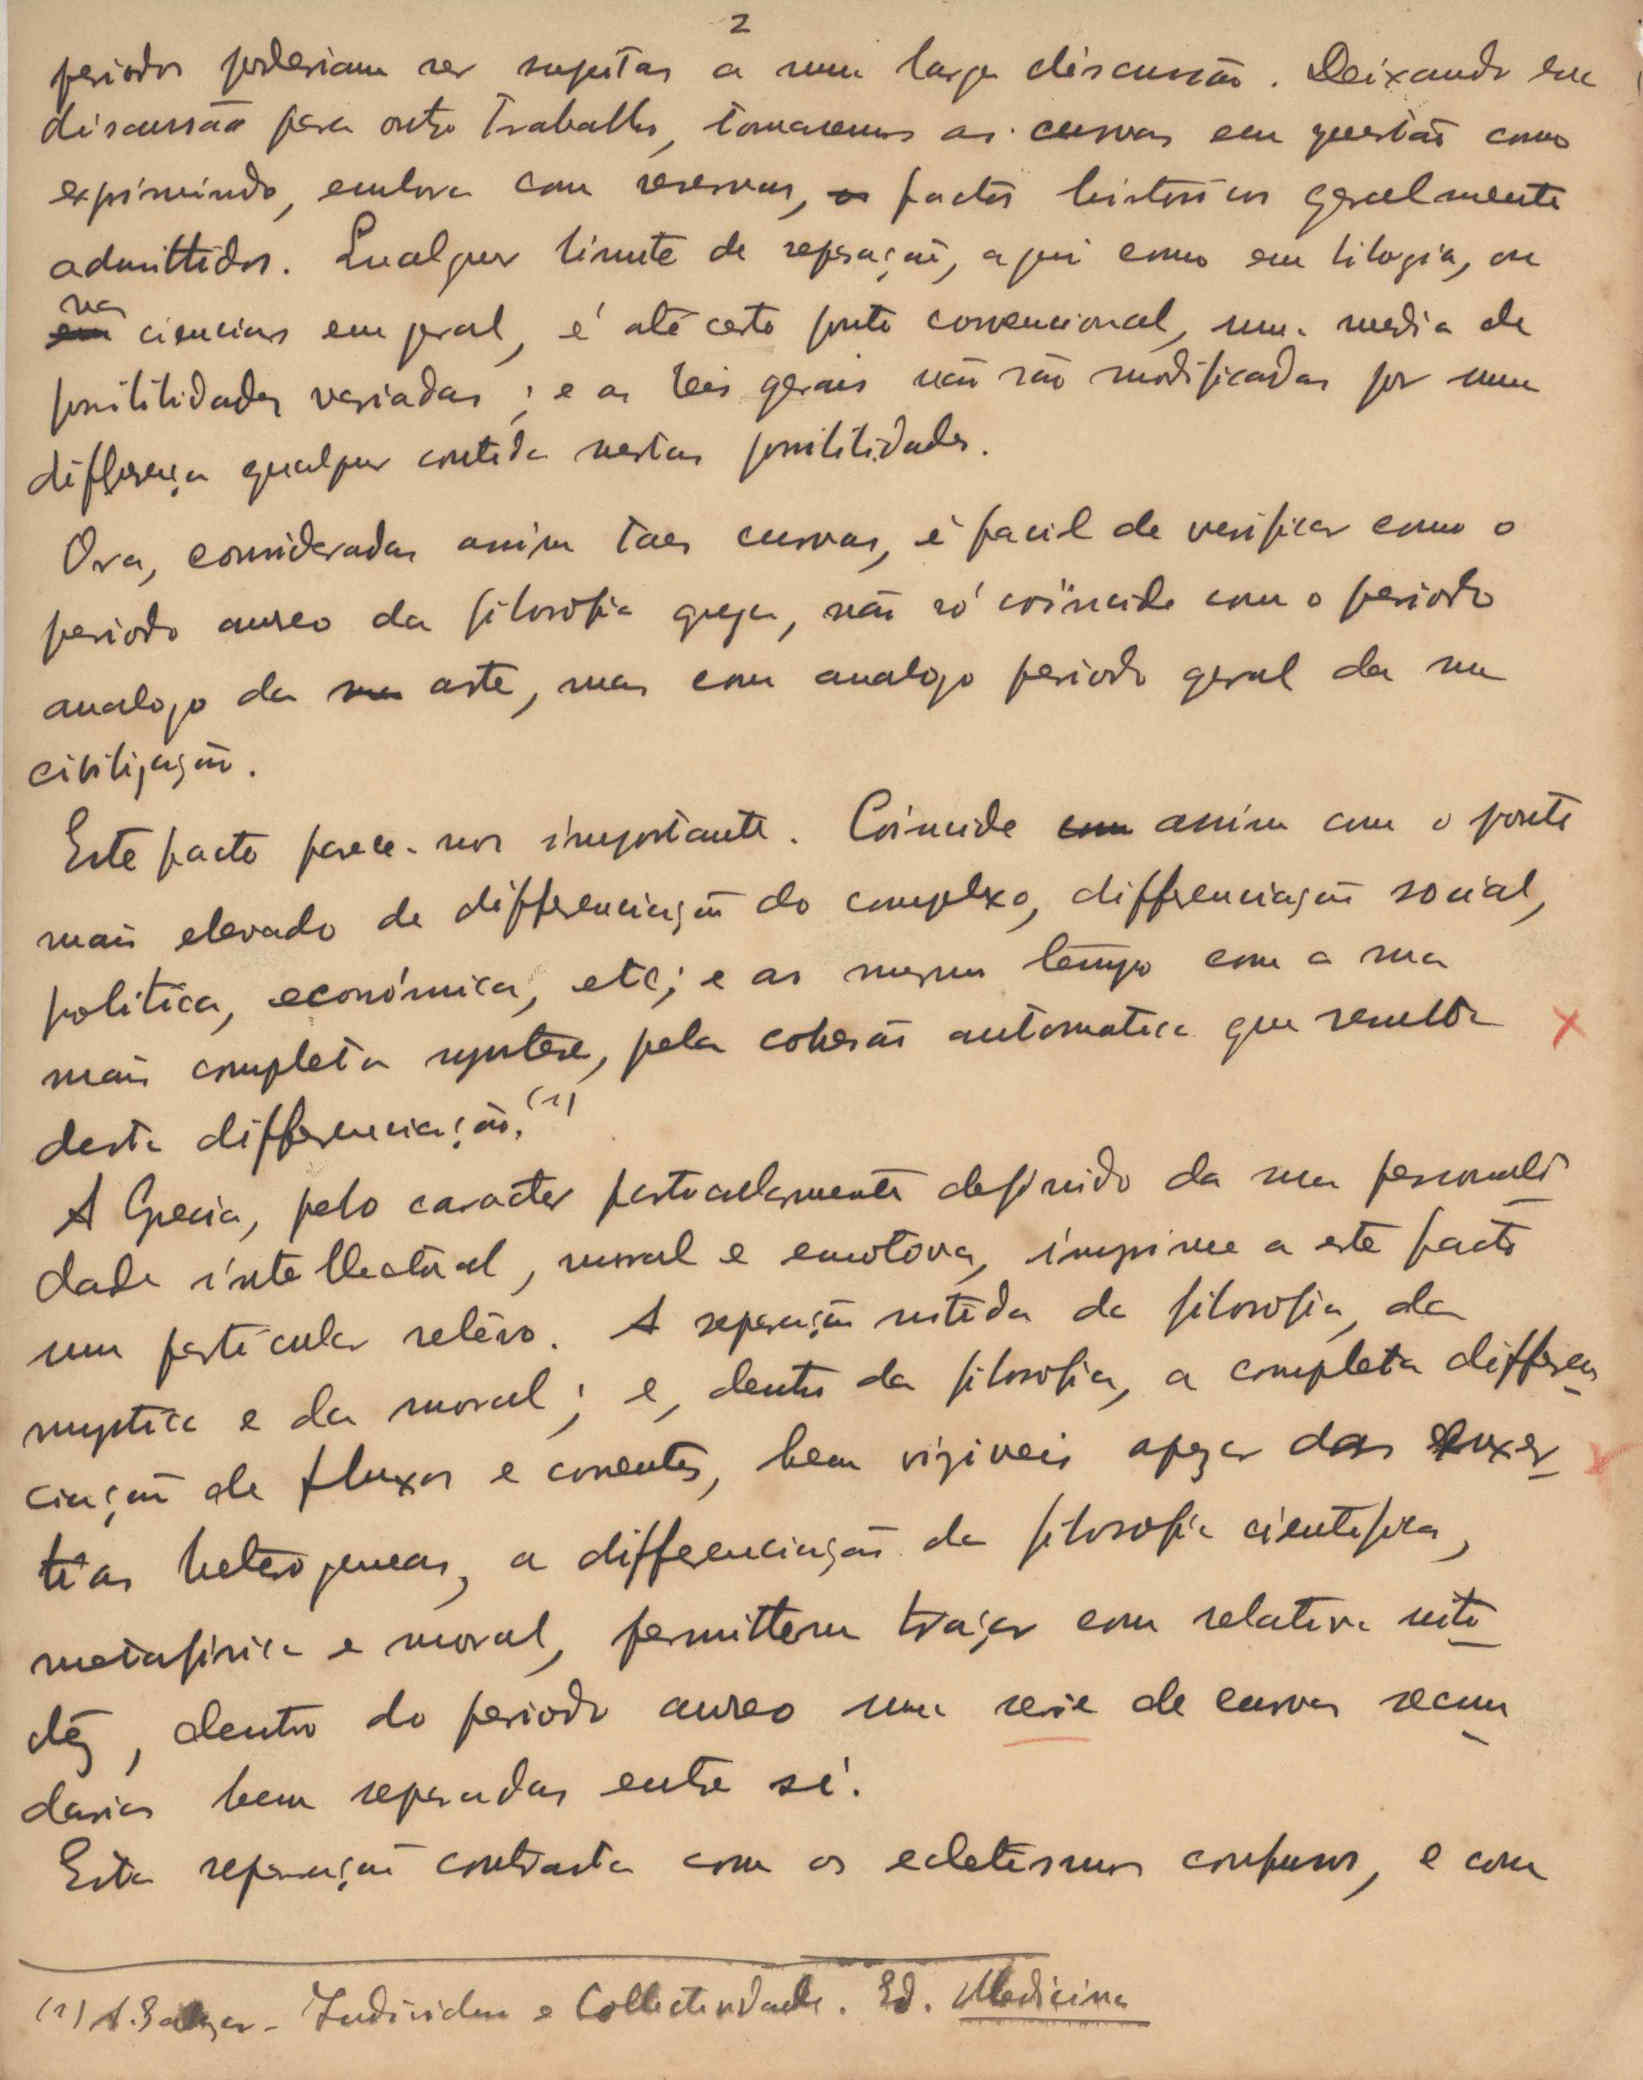 2
periodos poderiam ser sugeitas a uma larga discussão. Deixando essa
discussão para outro trabalho, tomaremos as curvas em questão como
exprimindo, embora com reservas, os factos historicos geralmente
admittidos. Qualquer limite de separação, aqui como em biologia, ou
nas
em ciencias em geral, é até certo ponto convencional, uma media de
possibilidades variadas; e as leis gerais não são modificadas por uma
differença qualquer contida nestas possibilidades.
Ora, consideradas assim taes curvas, é facil de verificar como o
periodo aureo da filosofia grega, não só coïncide com o periodo
analogo da sua arte, mas com analogo periodo geral da sua
civilização.
Este facto parece-nos importante. Coincide com assim com o ponto
mais elevado de differenciação do complexo, differenciação social,
politica, económica, etc; e ao mesmo tempo com a sua
mais completa syntese, pela cohesão automatica que resulta
desta differenciação.(1)
A Grecia, pelo caracter particularmente definido da sua personali
dade intellectual, moral e emotova, imprime a este facto
um particular relêvo. A separação nitida da filosofia, da
mystica e da moral; e, dentro da filosofia, a completa differen
ciação de fluxos e correntes, bem viziveis apezar das enxer
tias heterogeneas, a differenciação da filosofia cientifica,
metafisica e moral, permittem traçar com relativa niti
dêz, dentro do periodo aureo uma serie de curvas secun
darias bem separadas entre si.
Esta separação contrasta com os ecletismos confusos, e com
(1) A. Salazar - Individuo e Collectividade. Ed. Medicina